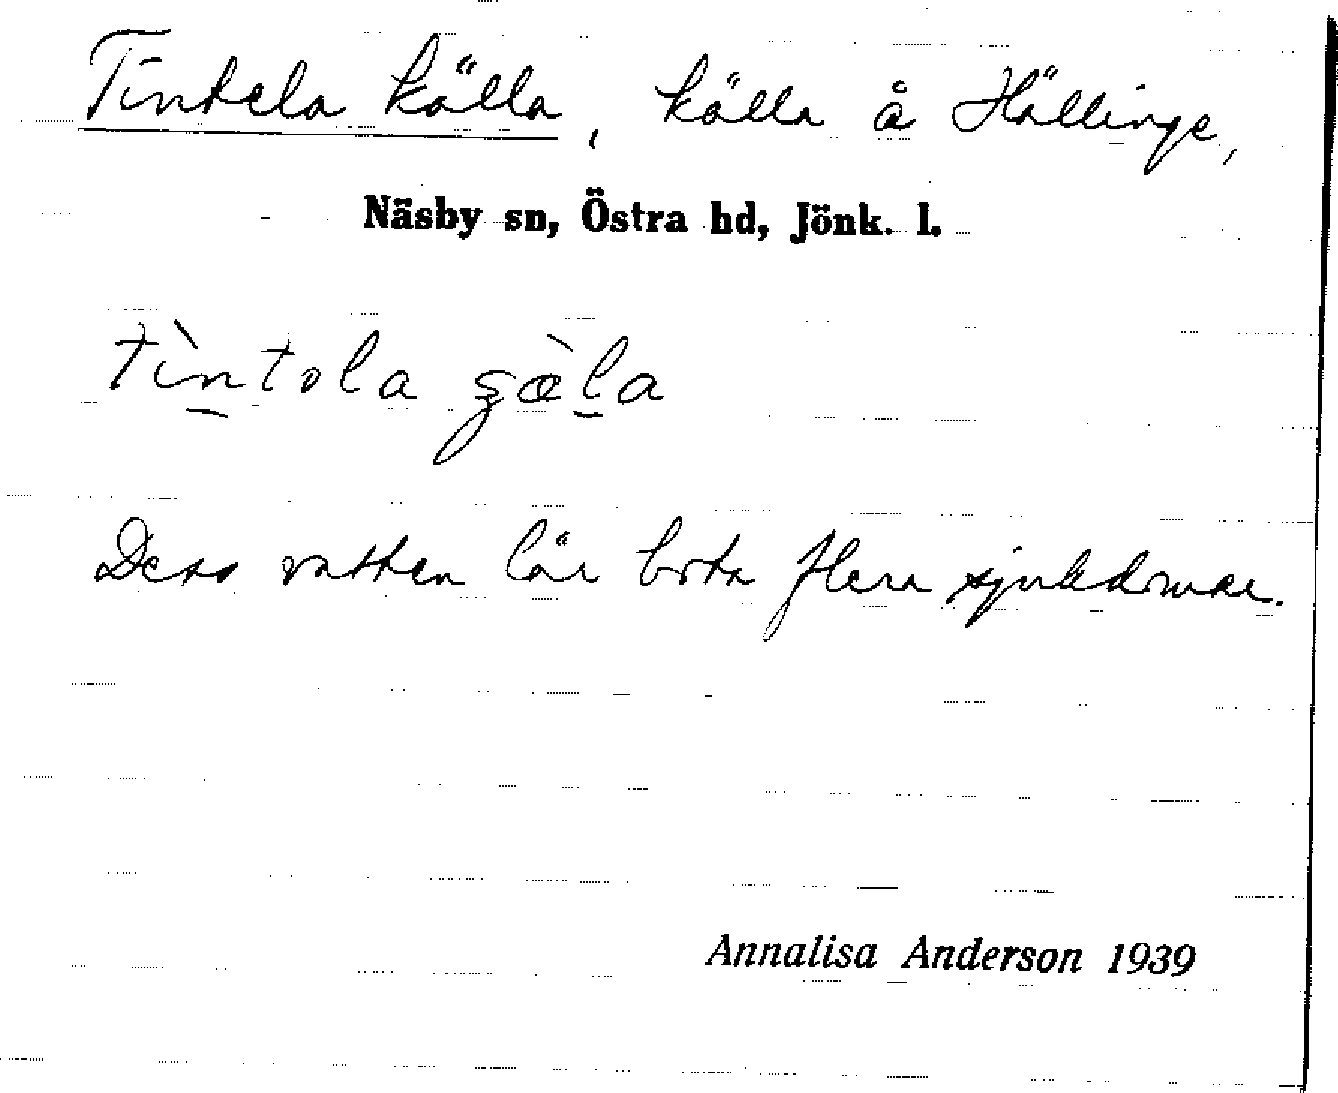 Tintela källa, källa å Hällinge,
Näsby sn, Östra hd, Jönk. l.
tìntola
Dess vatten lär bota flera sjukdomar.
Annalisa Anderson 1939